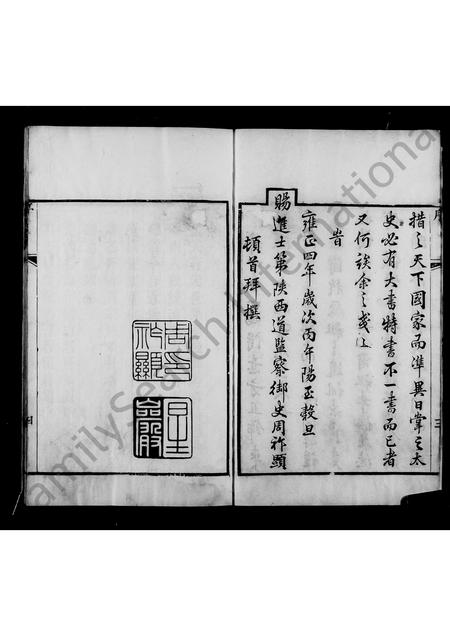 措之天下國家而準異日掌之太
史必有大書特書不一書而已者
又何俟余之戔戔
旹
雍正四年歲次丙午陽正穀旦
賜進士第陝西道監察御史周祚顯
頓首拜撰
周祚顯印
FamilySearch International